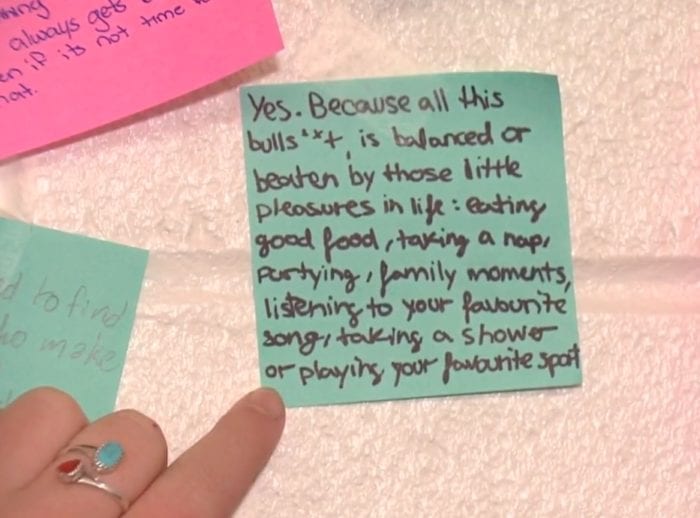 always gets
if its not time
Yes. Because all this
bulls**t, is balanced or
beaten by those little
pleasures in life: eating
good food, taking a nap,
partying, family moments,
listening to your favourite
song, taking a shower
or playing your favourite sport
to find
make